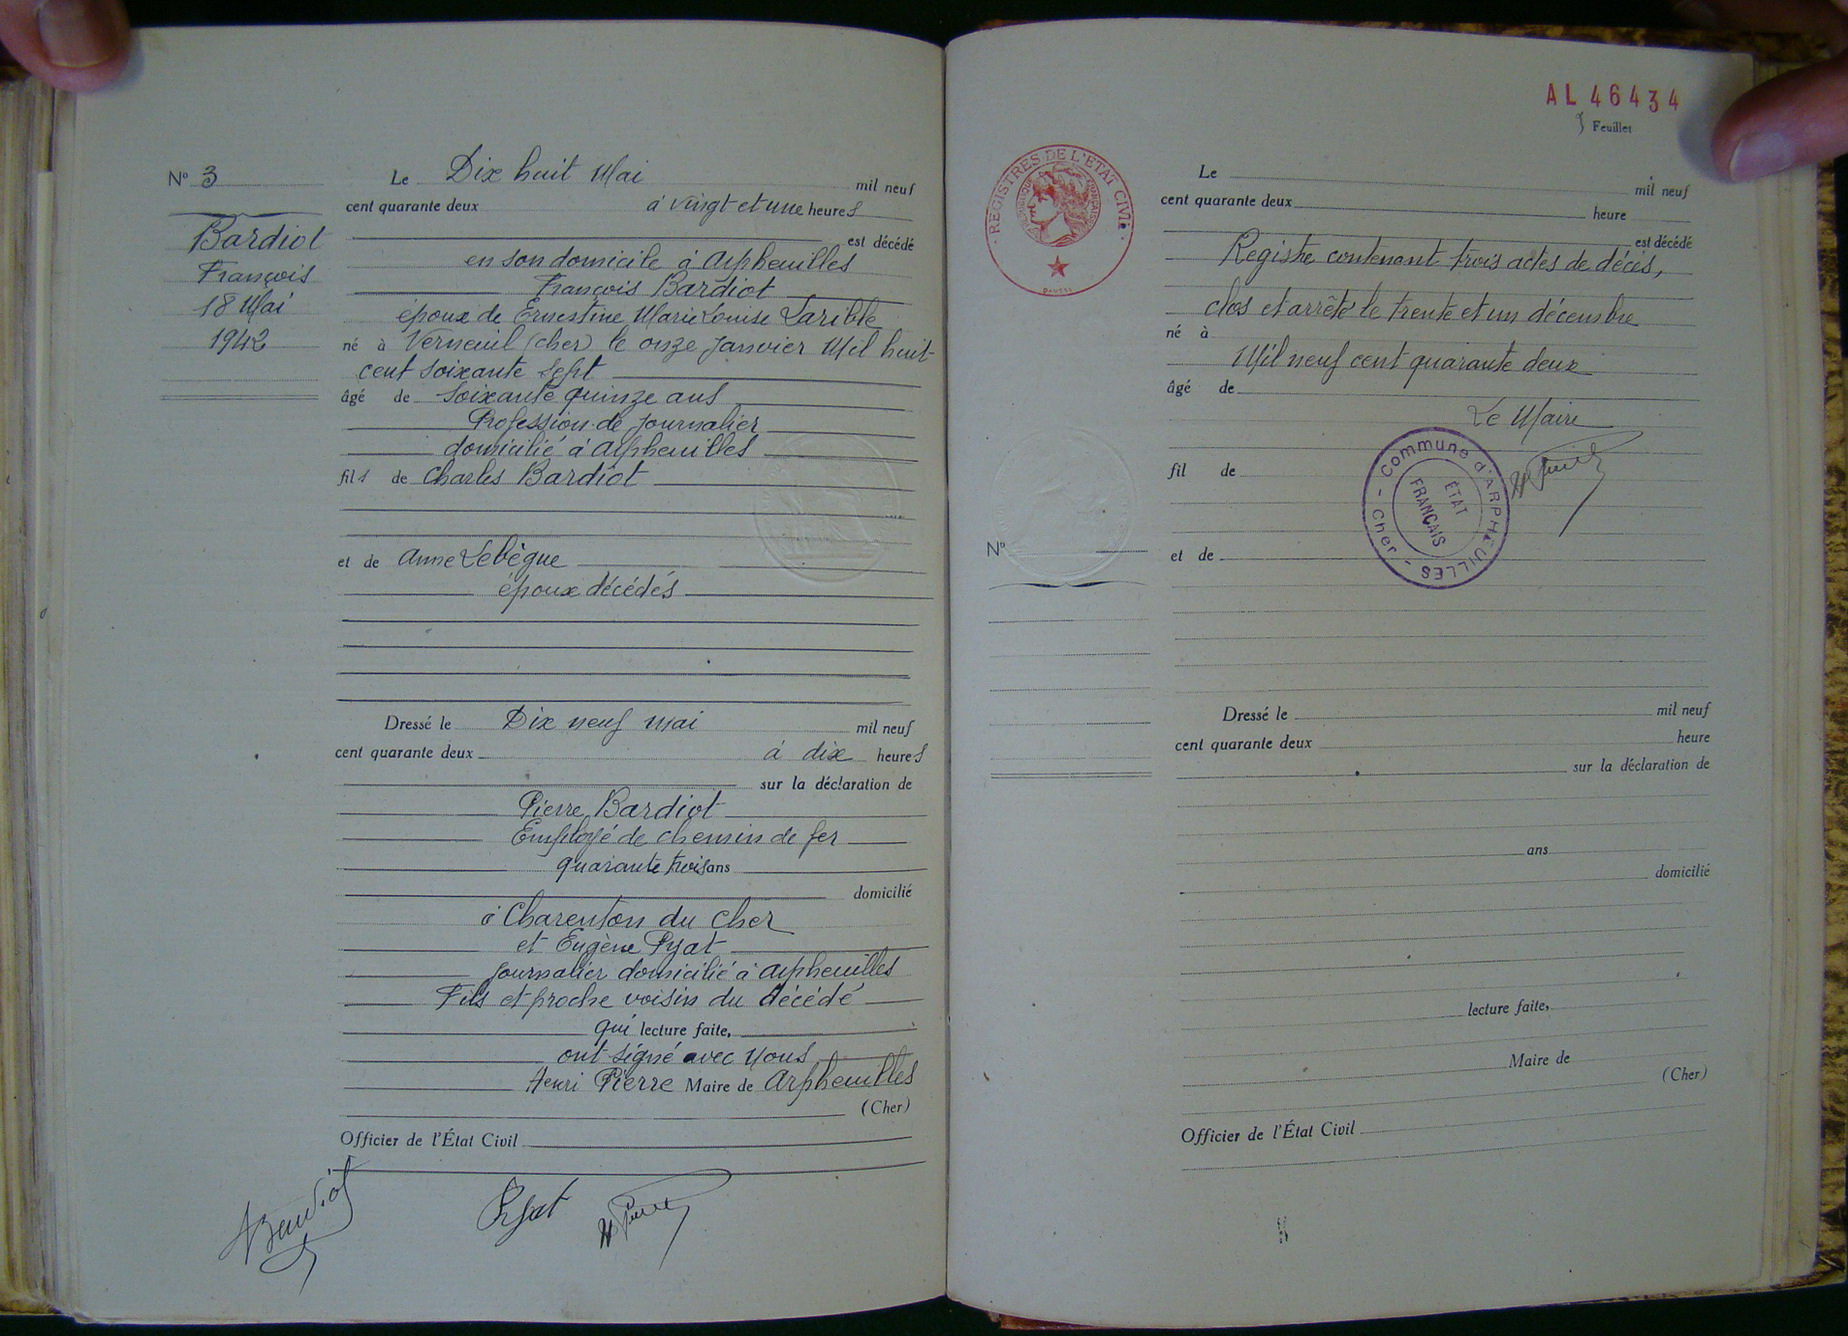 N° 3
Bardiot
François
18 Mai
1942
Le Dix huit Mai mil neuf
cent quarante deux à vingt et une heures
est décédé
en son domicile à Arpheuilles
François Bardiot
époux de Ernestine Marie Louise Larible
né à Verneuil (cher) le onze Janvier Mil huit
cent soixante sept
âgé de soixante quinze ans
Profession de journalier
domicilié à Arpheuilles
fils de Charles Bardiot
et de Anne Lebègue
époux décédés
Dressé le Dix neuf mai mil neuf
cent quarante deux à dix heures
sur la déclaration de
Pierre Bardiot
Employé de chemin de fer
quarante trois ans
domicilié
à Charenton du Cher
et Eugène Pyat
journalier domicilié à Arpheuilles
Fils et proche voisin du décédé
qui lecture faite,
ont signé avec Nous
Henri Pierre Maire de Arpheuilles
(Cher)
Officier de l'État Civil
Bardiot
Pyat
H Pierre
AL 46434
Feuillet
REGISTRES DE L'ETAT CIVIL
Le mil neuf
cent quarante deux heure
est décédé
Registre contenant trois actes de décès,
clos et arrêté le trente et un décembre
né à
Mil neuf cent quarante deux
âgé de
Le Maire
H Pierre
Commune d'ARPHEUILLES - Cher -
ÉTAT
FRANÇAIS
fil de
N°
et de
Dressé le mil neuf
cent quarante deux heure
sur la déclaration de
ans
domicilié
lecture faite,
Maire de
(Cher)
Officier de l'État Civil